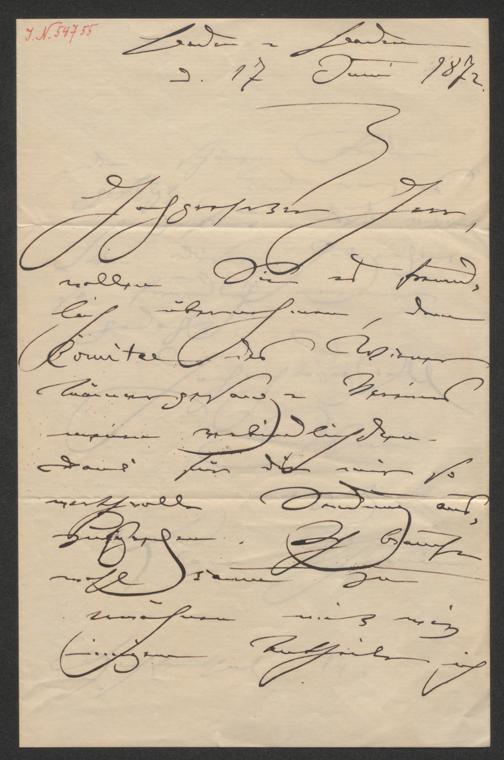 I.N. 54755
Baden-Baden
d. 17 Juni 1872.
Hochgeehrter Herr,
wollen Sie es freund-
lich übernehmen, dem
Comitee des Wiener
Männergesang-Vereins
meinen verbindlichsten
Dank für die mir so
werthvolle Sendung aus-
zusprechen. Ich brauche
wohl kaum zu
mit
innigem Antheile ich